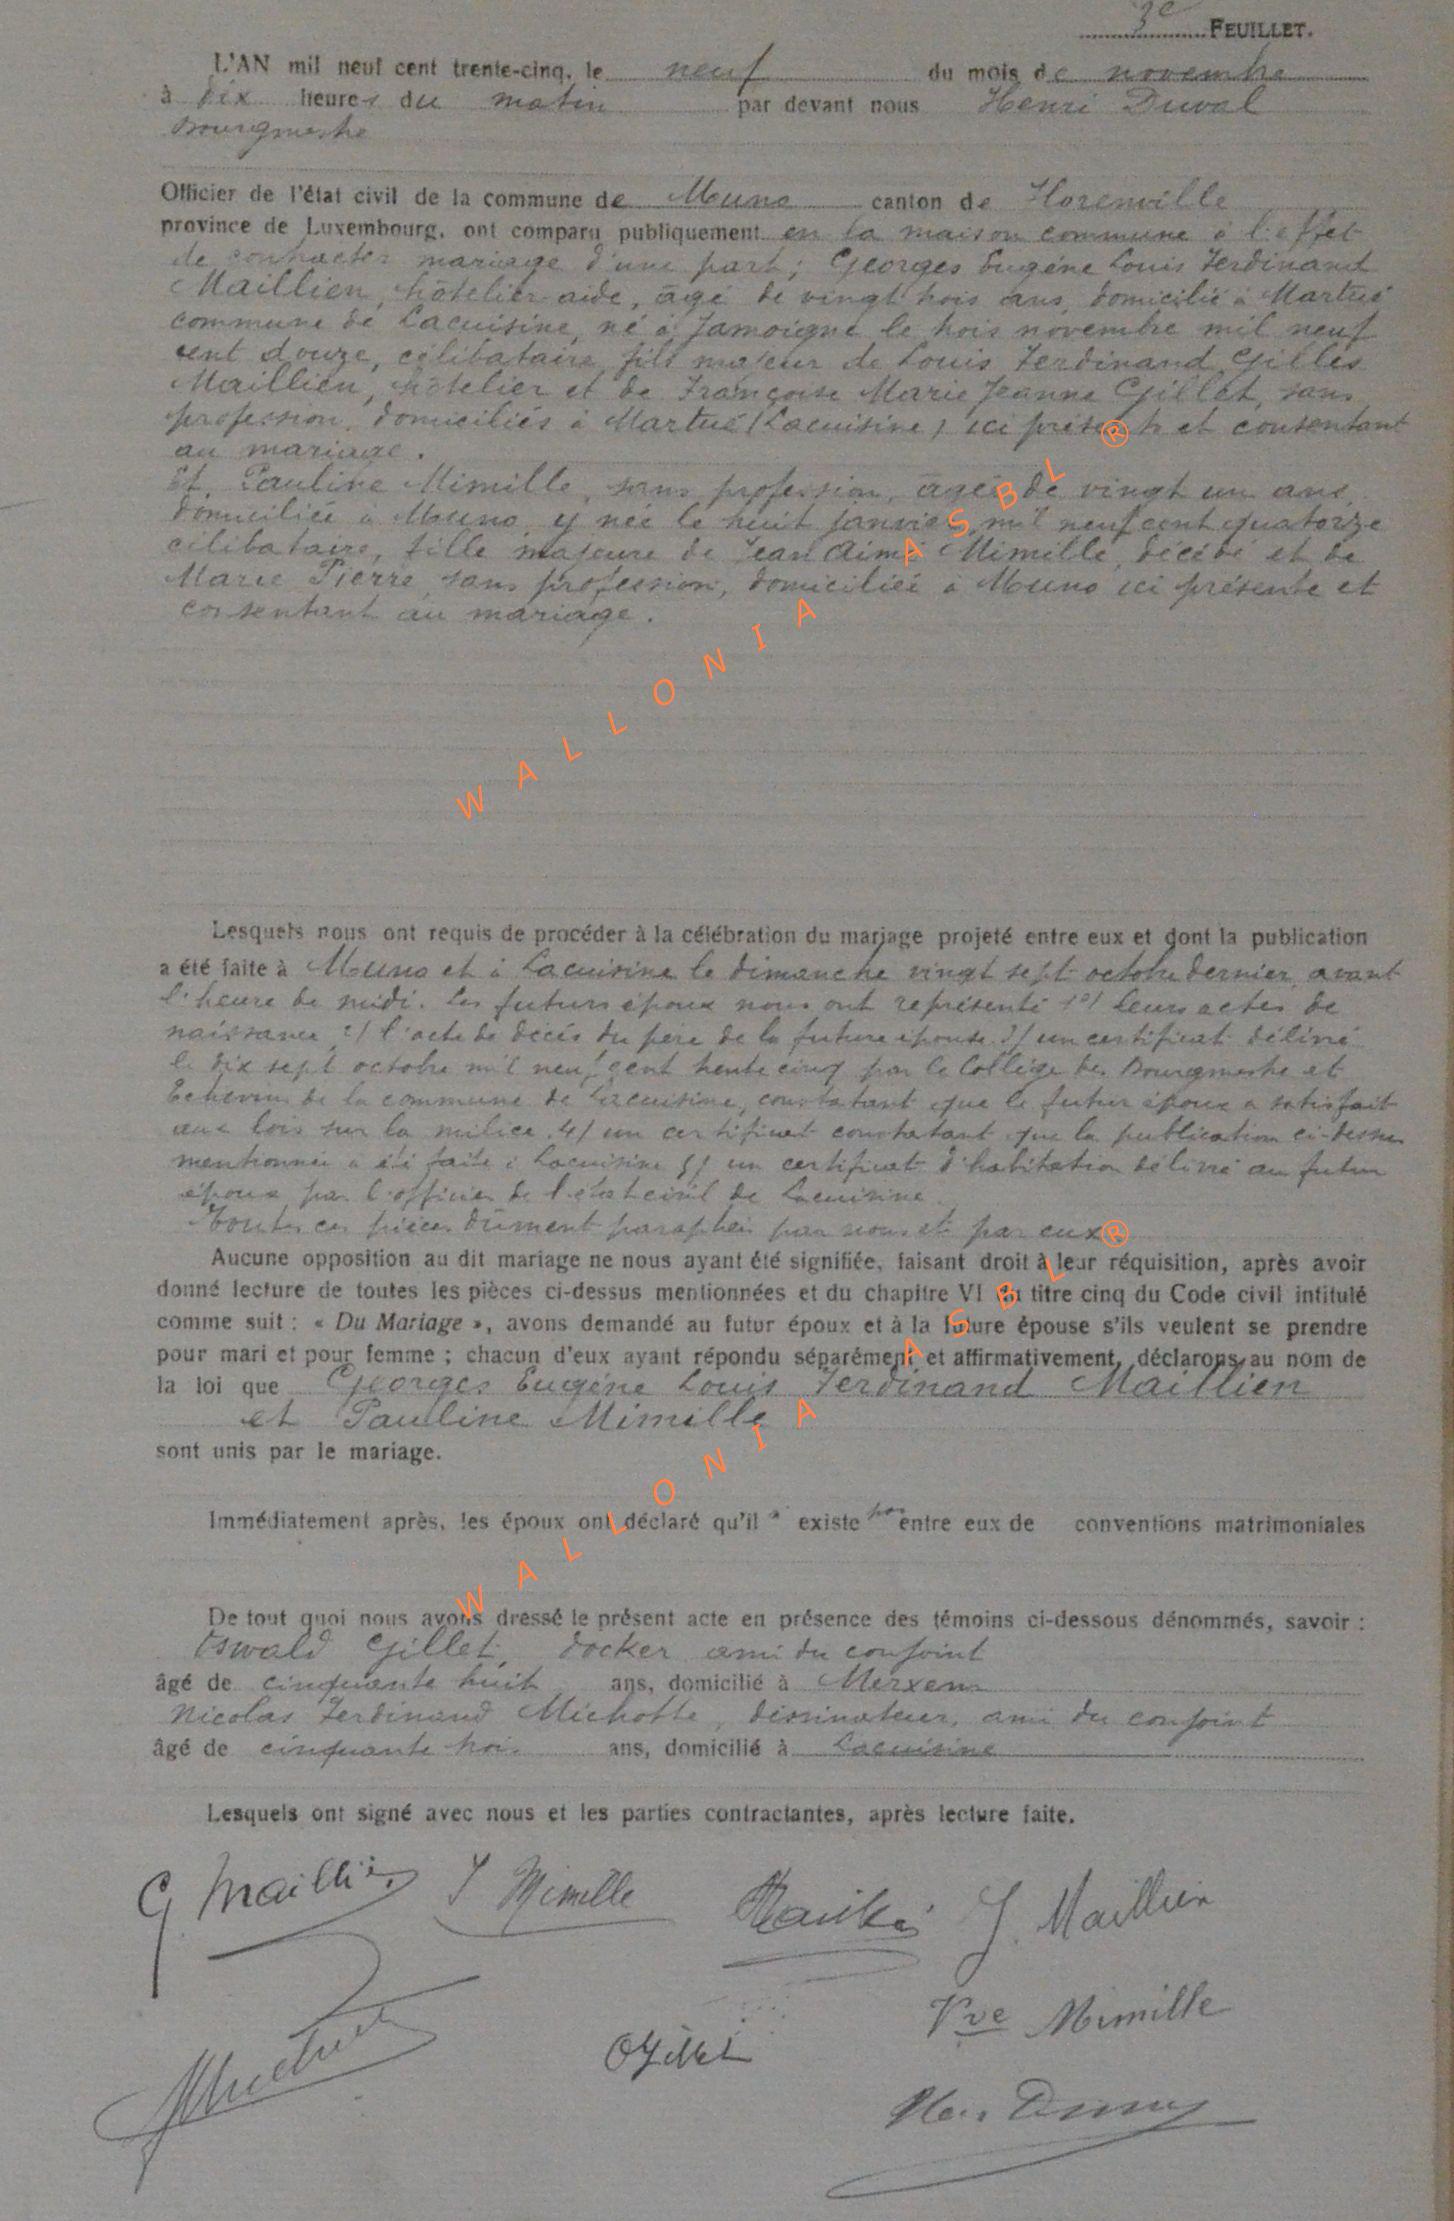 3e FEUILLET.
L'AN mil neuf cent trente-cinq, le neuf du mois de novembre
à dix heures du matin par devant nous Henri Duval
Bourgmestre
Officier de l'état civil de la commune de Muno canton de Florenville
province de Luxembourg, ont comparu publiquement en la maison commune à l'effet
de contracter mariage d'une part; Georges Eugéne Louis Ferdinand
Maillien, hôtelier-aide, âgé de vingt trois ans, domicilié à Martué
commune de Lacuisine, né à Jamoigne le trois novembre mil neuf
cent douze, célibataire, fils majeur de Louis Ferdinand Gilles
Maillien, hôtelier et de Françoise Marie Jeanne Gillet, sans
profession, domiciliés à Martué (Lacuisine) ici présents et consentant
au mariage.
Et, Pauline Mimille, sans profession, âgée de vingt un ans,
domiciliée à Muno, y née le huit janvier mil neuf cent quatorze
célibataire, fille majeure de Jean Aimé Mimille, décédé et de
Marie Pierre, sans profession, domiciliée à Muno ici présente et
consentant au mariage.
Lesquels nous ont requis de procéder à la célébration du mariage projeté entre eux et dont la publication
a été faite à Muno et à Lacuisine le dimanche vingt sept octobre dernier, avant
l'heure de midi. Les futurs époux nous ont représenté 1°/ leurs actes de
naissance 2/ l'acte de décès du père de la future épouse 3/ un certificat délivré
le dix sept octobre mil neuf cent trente cinq par le Collège des Bourgmestre et
Echevins de la commune de Lacuisine, constatant que le futur époux a satisfait
aux lois sur la milice. 4/ un certificat constatant que la publication ci-dessus
mentionnée a été faite à Lacuisine 5/ un certificat d'habitation délivré au futur
époux par l'officier de l'état civil de Lacuisine.
Toutes ces pièces dûment paraphées par nous et par eux
Aucune opposition au dit mariage ne nous ayant été signifiée, faisant droit à leur réquisition, après avoir
donné lecture de toutes les pièces ci-dessus mentionnées et du chapitre VI du titre cinq du Code civil intitulé
comme suit : « Du Mariage », avons demandé au futur époux et à la future épouse s'ils veulent se prendre
pour mari et pour femme ; chacun d'eux ayant répondu séparément et affirmativement, déclarons au nom de
la loi que Georges Eugéne Louis Ferdinand Maillien
et Pauline Mimille
sont unis par le mariage.
Immédiatement après, les époux ont déclaré qu'il n' existe pas entre eux de conventions matrimoniales
De tout quoi nous avons dressé le présent acte en présence des témoins ci-dessous dénommés, savoir :
Oswald Gillet, docker ami du conjoint
âgé de cinquante huit ans, domicilié à Merxem
Nicolas Ferdinand Michotte, dessinateur, ami du conjoint
âgé de cinquante trois ans, domicilié à Lacuisine
Lesquels ont signé avec nous et les parties contractantes, après lecture faite.
G Maillien Mimille J. Maillien
Vve Mimille
OGillet
WALLONIA ASBL ®
WALLONIA ASBL ®